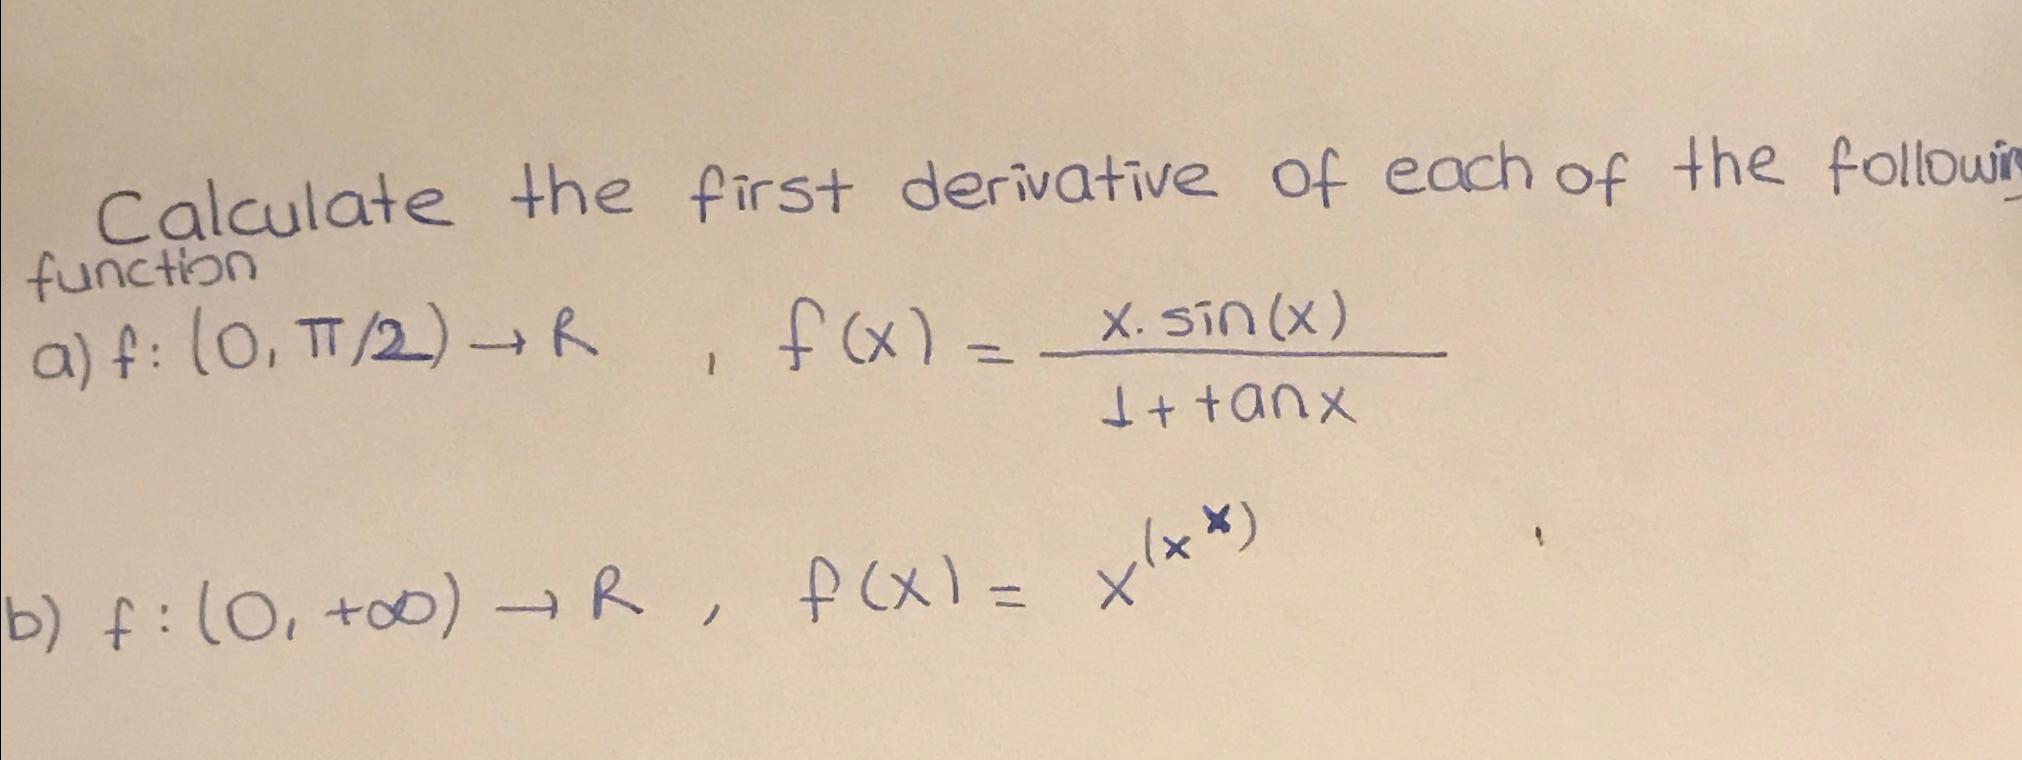 Calculate the first derivative of each of the followin
function
a) f: (0, π/2) → R , f(x) = x. sin(x) / 1 + tanx
b) f: (0, +∞) → R , f(x) = x^(x^x)